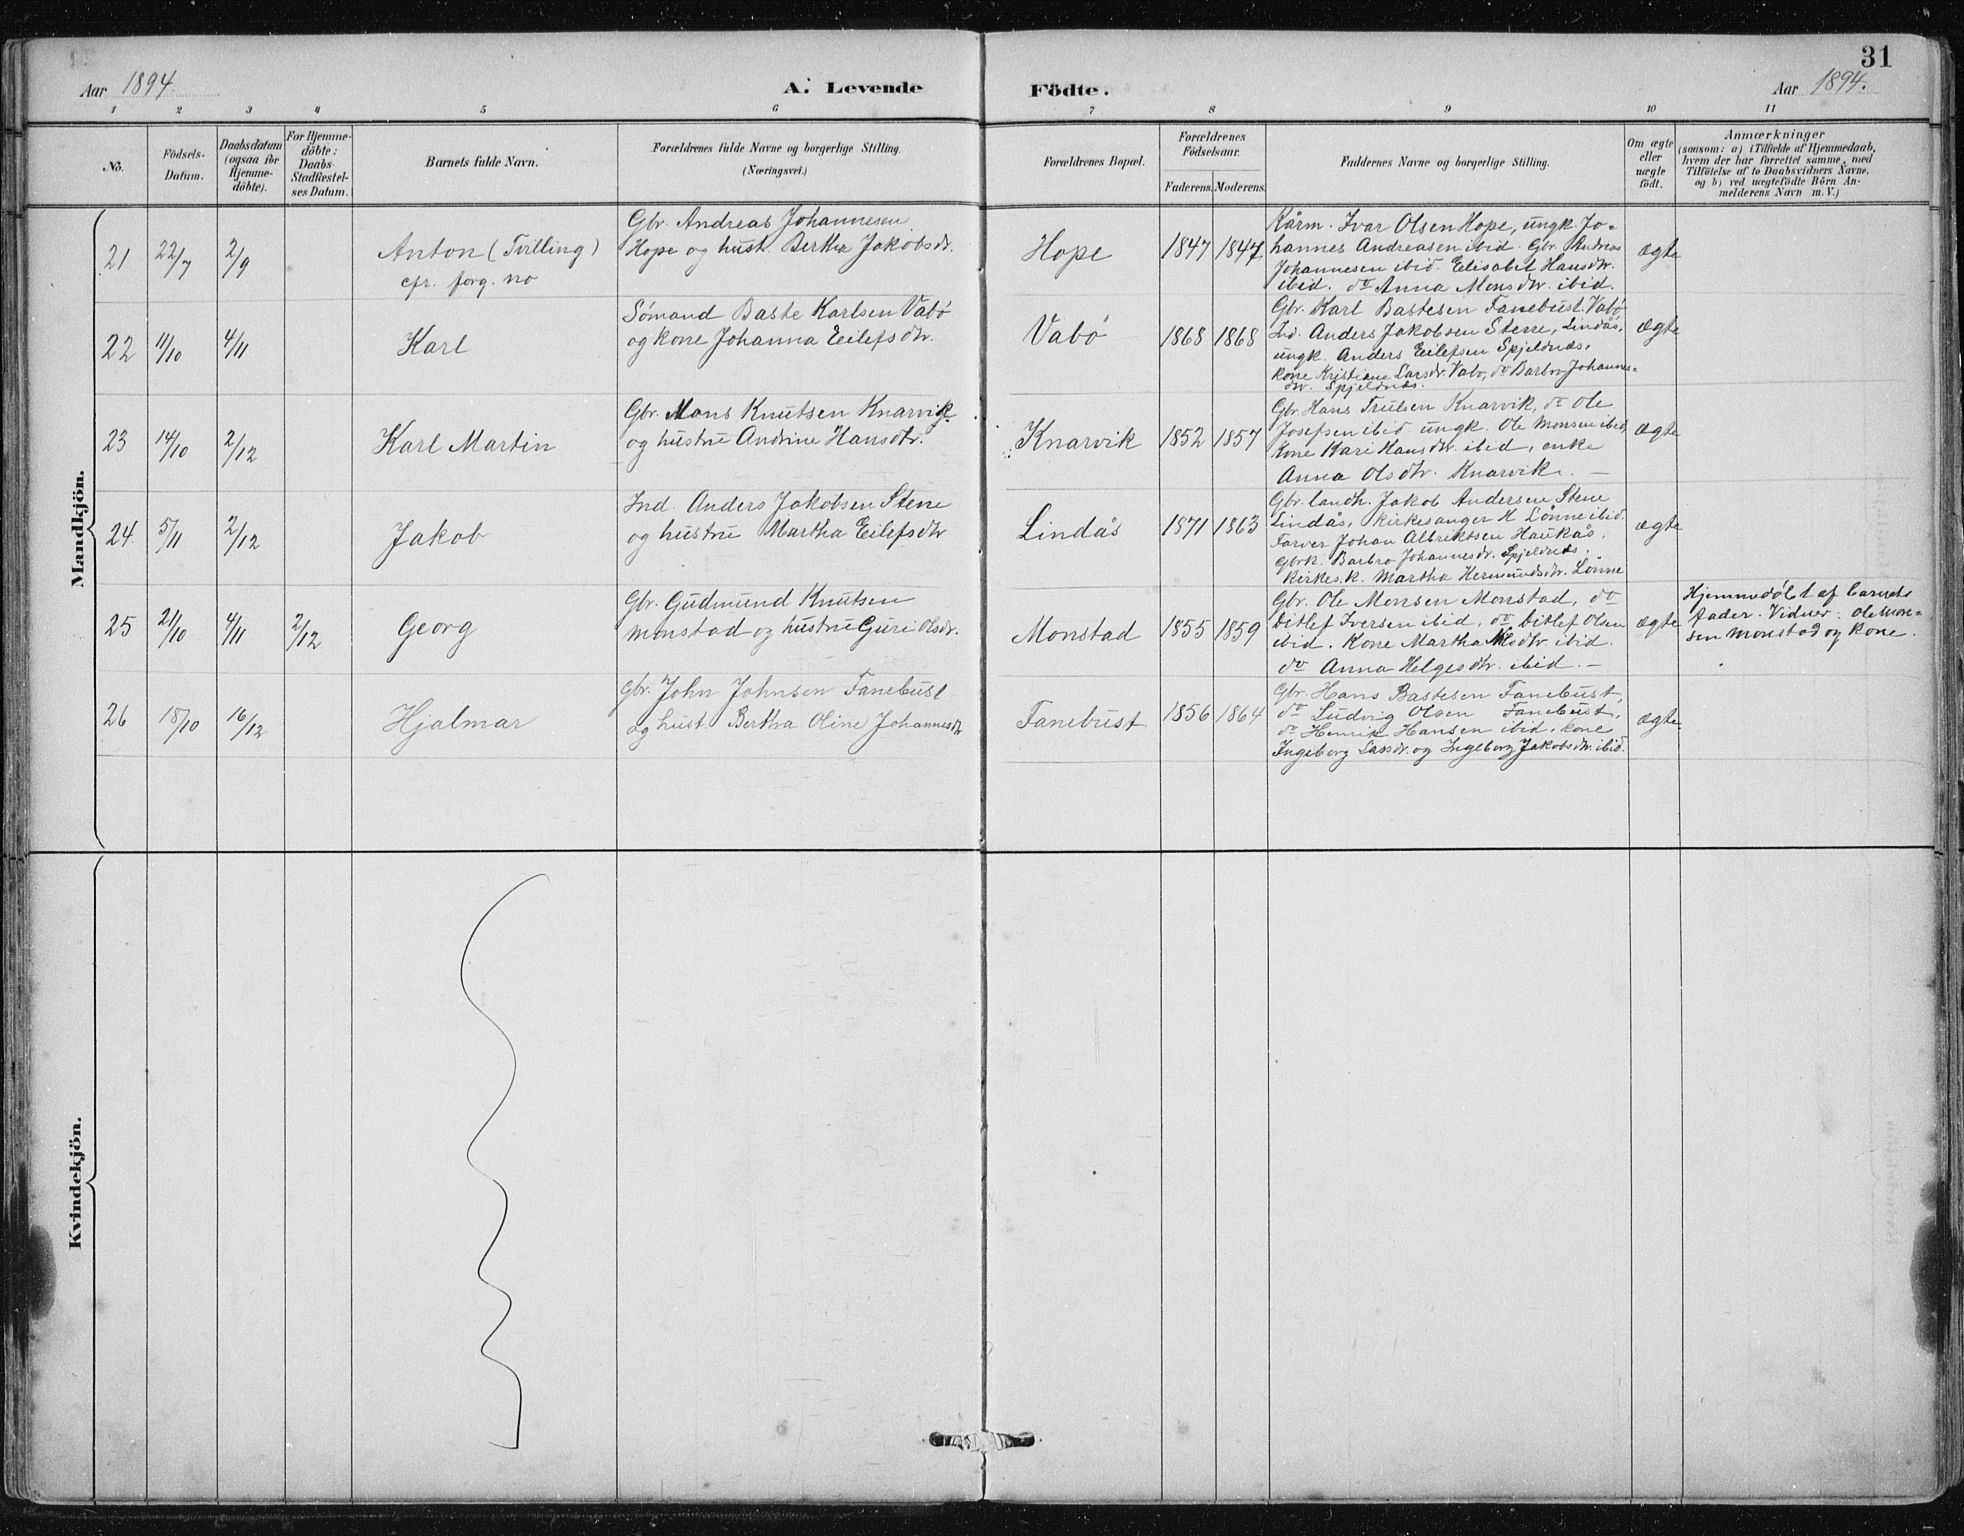 31
Aar 1894.
A. Levende
Födte.
Aar 1894.
1 2 3 4 5 6 7 8 9 10 11
No.
Födsels-
Datum.
Daabsdatum
(ogsaa for
Hjemme-
döbte).
For Hjemme-
döbte:
Daabs-
Stadfæstel-
ses Datum.
Barnets fulde Navn.
Forældrenes fulde Navne og borgerlige Stilling.
(Næringsvei.)
Forældrenes Bopæl.
Forældrenes
Födselsaar.
Faderens. Moderens.
Faddernes Navne og borgerlige Stilling.
Om ægte
eller
uægte
födt.
Anmærkninger
(saasom: a) i Tilfælde af Hjemmedaab,
hvem der har forrettet samme, med
Tilföielse af to Daabsvidners Navne,
og b) ved uægtefödte Börn An-
melderens Navn m. V.)
Mandkjön.
21 22/7 2/9
Anton (Tvilling)
cfr. forg. no
Gbr. Andreas Johannesen
Hope og hust. Bertha Jakobsdr.
Hope 1847 1847
Kårm. Ivar Olsen Hope, ungk. Jo-
hannes Andreasen ibid. Gbr. Andreas
Johannesen ibid. Elisabet Hansdtr.
ibid. do Anna Monsdtr. ibid.
ægte
22 11/10 4/11
Karl
Sømand Baste Karlsen Vabø
og kone Johanna Eilefsdtr.
Vabø 1868 1868
Gbr. Karl Bastesen Fanebust Vabø
Ind. Anders Jakobsen Stene, Lindås,
ungk. Anders Eilefsen Spjeldnæs,
kone Kristiane Larsdr. Vabø, do Barbro Johannes-
dtr. Spjeldnæs.
ægte
23 14/10 2/12
Karl Martin
Gbr. Mons Knutsen Knarvik
og hustru Andrine Hansdtr.
Knarvik 1852 1857
Gbr. Hans Trulsen Knarvik, do Ole
Josefsen ibid. ungk. Ole Monsen ibid,
Kone Kari Hansdtr. ibid, enke
Anna Olsdtr. Knarvik. —
ægte
24. 5/11 2/12
Jakob
Ind. Anders Jakobsen Stene
og hustru Martha Eilefsdtr
Lindås 1871 1863
Gbr. landh. Jakob Andersen Stene
Lindås, Kirkesanger H Lønne ibid.
Farver Johan Albriktsen Haukås,
Gbrk. Barbro Johannesdr. Spjeldnæs,
Kirkes.k. Martha Hermundsdtr. Lønne
ægte
25 21/10 4/11 2/12
Georg
Gbr. Gudmund Knutsen
Monstad og hustru Guri Olsdr.
Monstad 1855 1859
Gbr. Ole Monsen Monstad, do
Ditlef Iversen ibid, do Ditlef Olsen
ibid. Kone Martha Nilsdtr. ibid.
do Anna Helgesdtr. ibid. —
ægte
Hjemmedøbt af barnets
fader. Vidner: Ole Mon-
sen Monstad og kone.
26 18/10 16/12
Hjalmar
Gbr. John Johnsen Fanebust
og hust. Bertha Oline Johannesdr
Fanebust 1856 1864
Gbr. Hans Bastesen Fanebust,
do Ludvig Olsen Fanebust,
do Henrik Hansen ibid. kone
Ingeborg Larsdr. og Ingeborg Jakobsdtr. ibid.
ægte
Kvindekjön.